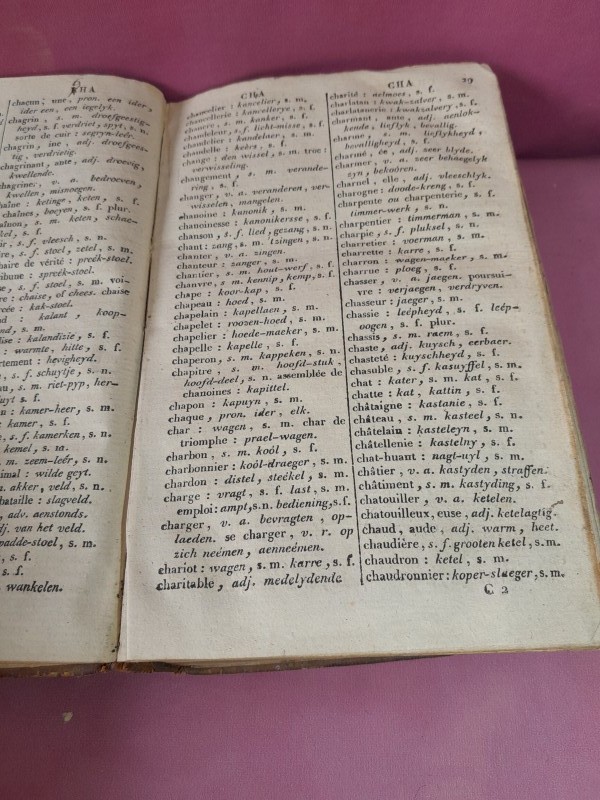 HA
chacun, une, pron. een ider,
ider een, een iegelyk.
chagrin, s. m. droefgeestig-
heyd, s. f. verdriet, spyt, s. n.
sorte de cuir : segryn-leér.
chagrin, ine, adj. droefgees-
tig, verdrietig.
chagrinant, ante, adj. droevig,
kwellende.
chagriner, v. a. bedroeven,
kwellen, misnoegen.
chaîne : ketinge, keten, s. f.
chaînes, boeyen, s. f. plur.
s. m. keten, schae-
s. f.
s. f. vleesch, s. n.
s. f. stoel, zetel, s. m.
chaire de vérité : preék-stoel.
tribune : spreék-stoel.
s. f. stoel, s. m. voi-
chaise, of chees. chaise
percée : kak-stoel.
kalant, koop-
s. m.
kalandizie, s. f.
warmte, hitte, s. f.
hevigheyd.
s. f. schuytje, s. n.
s. m. riet-pyp, her-
s. f.
kamer-heer, s. m.
kamer, s. f.
s. f. kamerken, s. n.
kemel, s. m.
s. m. zeem-leér, s. n.
animal : wilde geyt.
akker, veld, s. n.
bataille : slagveld.
adv. aenstonds.
adj. van het veld.
padde-stoel, s. m.
s. f.
s. f.
wankelen.
CHA
chancelier : kancelier, s. m.
chancellerie : kancellerye, s. f.
chancre : s. m. kanker, s. f.
chandeleur, s. f. licht-misse, s. f.
chandelier : kandelaer, s. m.
chandelle : keérs, s. f.
change : den wissel, s. m. troc :
verwisseling.
changement, s. m. verande-
ring, s. f.
changer, v. a. veranderen, ver-
wisselen, mangelen.
chanoine : kanonik, s. m.
chanoinesse : kanonikersse, s. f.
chanson, s. f. lied, gezang, s. n.
chant : zang, s. m. 'tzingen, s. n.
chanter, v. a. zingen.
chanteur : zanger, s. m.
chantier, s. m. hout-werf, s. f.
chanvre, s. m. kennip, kemp, s. f.
chape : koor-kap, s. f.
chapeau : hoed, s. m.
chapelain : kapellaen, s. m.
chapelet : roosen-hoed, s. m.
chapelier : hoede-maeker, s. m.
chapelle : kapelle, s. f.
chaperon, s. m. kappeken, s. n.
chapitre, s. m. hoofd-stuk,
hoofd-deel, s. n. assemblée de
chanoines : kapittel.
chapon : kapuyn, s. m.
chaque, pron. ider, elk.
char : wagen, s. m. char de
triomphe : prael-wagen.
charbon, s. m. koól, s. f.
charbonnier : koól-draeger, s. m.
chardon : distel, steékel, s. m.
charge : vragt, s. f. last, s. m.
emploi : ampt, s. n. bediening, s. f.
charger, v. a. bevragten, op-
laeden. se charger, v. r. op
zich neémen, aenneémen.
chariot : wagen, s. m. karre, s. f.
charitable, adj. medelydende
CHA
39
charité : aelmoes, s. f.
charlatan : kwak-zalver, s. m.
charlatanerie : kwakzalvery, s. f.
charmant, ante, adj. aenlok-
kende, lieflyk, bevallig.
charme, s. m. lieflykheyd,
bevalligheyd, s. f.
charmé, ée, adj. zeer blyde.
charmer, v. a. zeer behaegelyk
zyn, bekooren.
charnel, elle, adj. vleeschlyk.
charogne : doode-kreng, s. f.
charpente ou charpenterie, s. f.
timmer-werk, s. n.
charpentier : timmerman, s. m.
charpie, s. f. pluksel, s. n.
charretier : voerman, s. m.
charrette : karre, s. f.
charron : wagen-maeker, s. m.
charrue : ploeg, s. f.
chasser, v. a. jaegen. poursui-
vre : verjaegen, verdryven.
chasseur : jaeger, s. m.
chassie : leépheyd, s. f. leép-
oogen, s. f. plur.
chassis, s. m. raem, s. f.
chaste, adj. kuysch, eerbaer.
chasteté : kuyschheyd, s. f.
chasuble, s. f. kasuyffel, s. m.
chat : kater, s. m. kat, s. f.
chatte : kat, kattin, s. f.
châtaigne : kastanie, s. f.
château, s. m. kasteel, s. n.
châtelain : kasteleyn, s. m.
châtellenie : kastelny, s. f.
chat-huant : nagt-uyl, s. m.
châtier, v. a. kastyden, straffen.
châtiment, s. m. kastyding, s. f.
chatouiller, v. a. ketelen.
chatouilleux, euse, adj. ketelagtig.
chaud, aude, adj. warm, heet.
chaudière, s. f. grooten ketel, s. m.
chaudron : ketel, s. m.
chaudronnier : koper-slaeger, s. m.
C 2